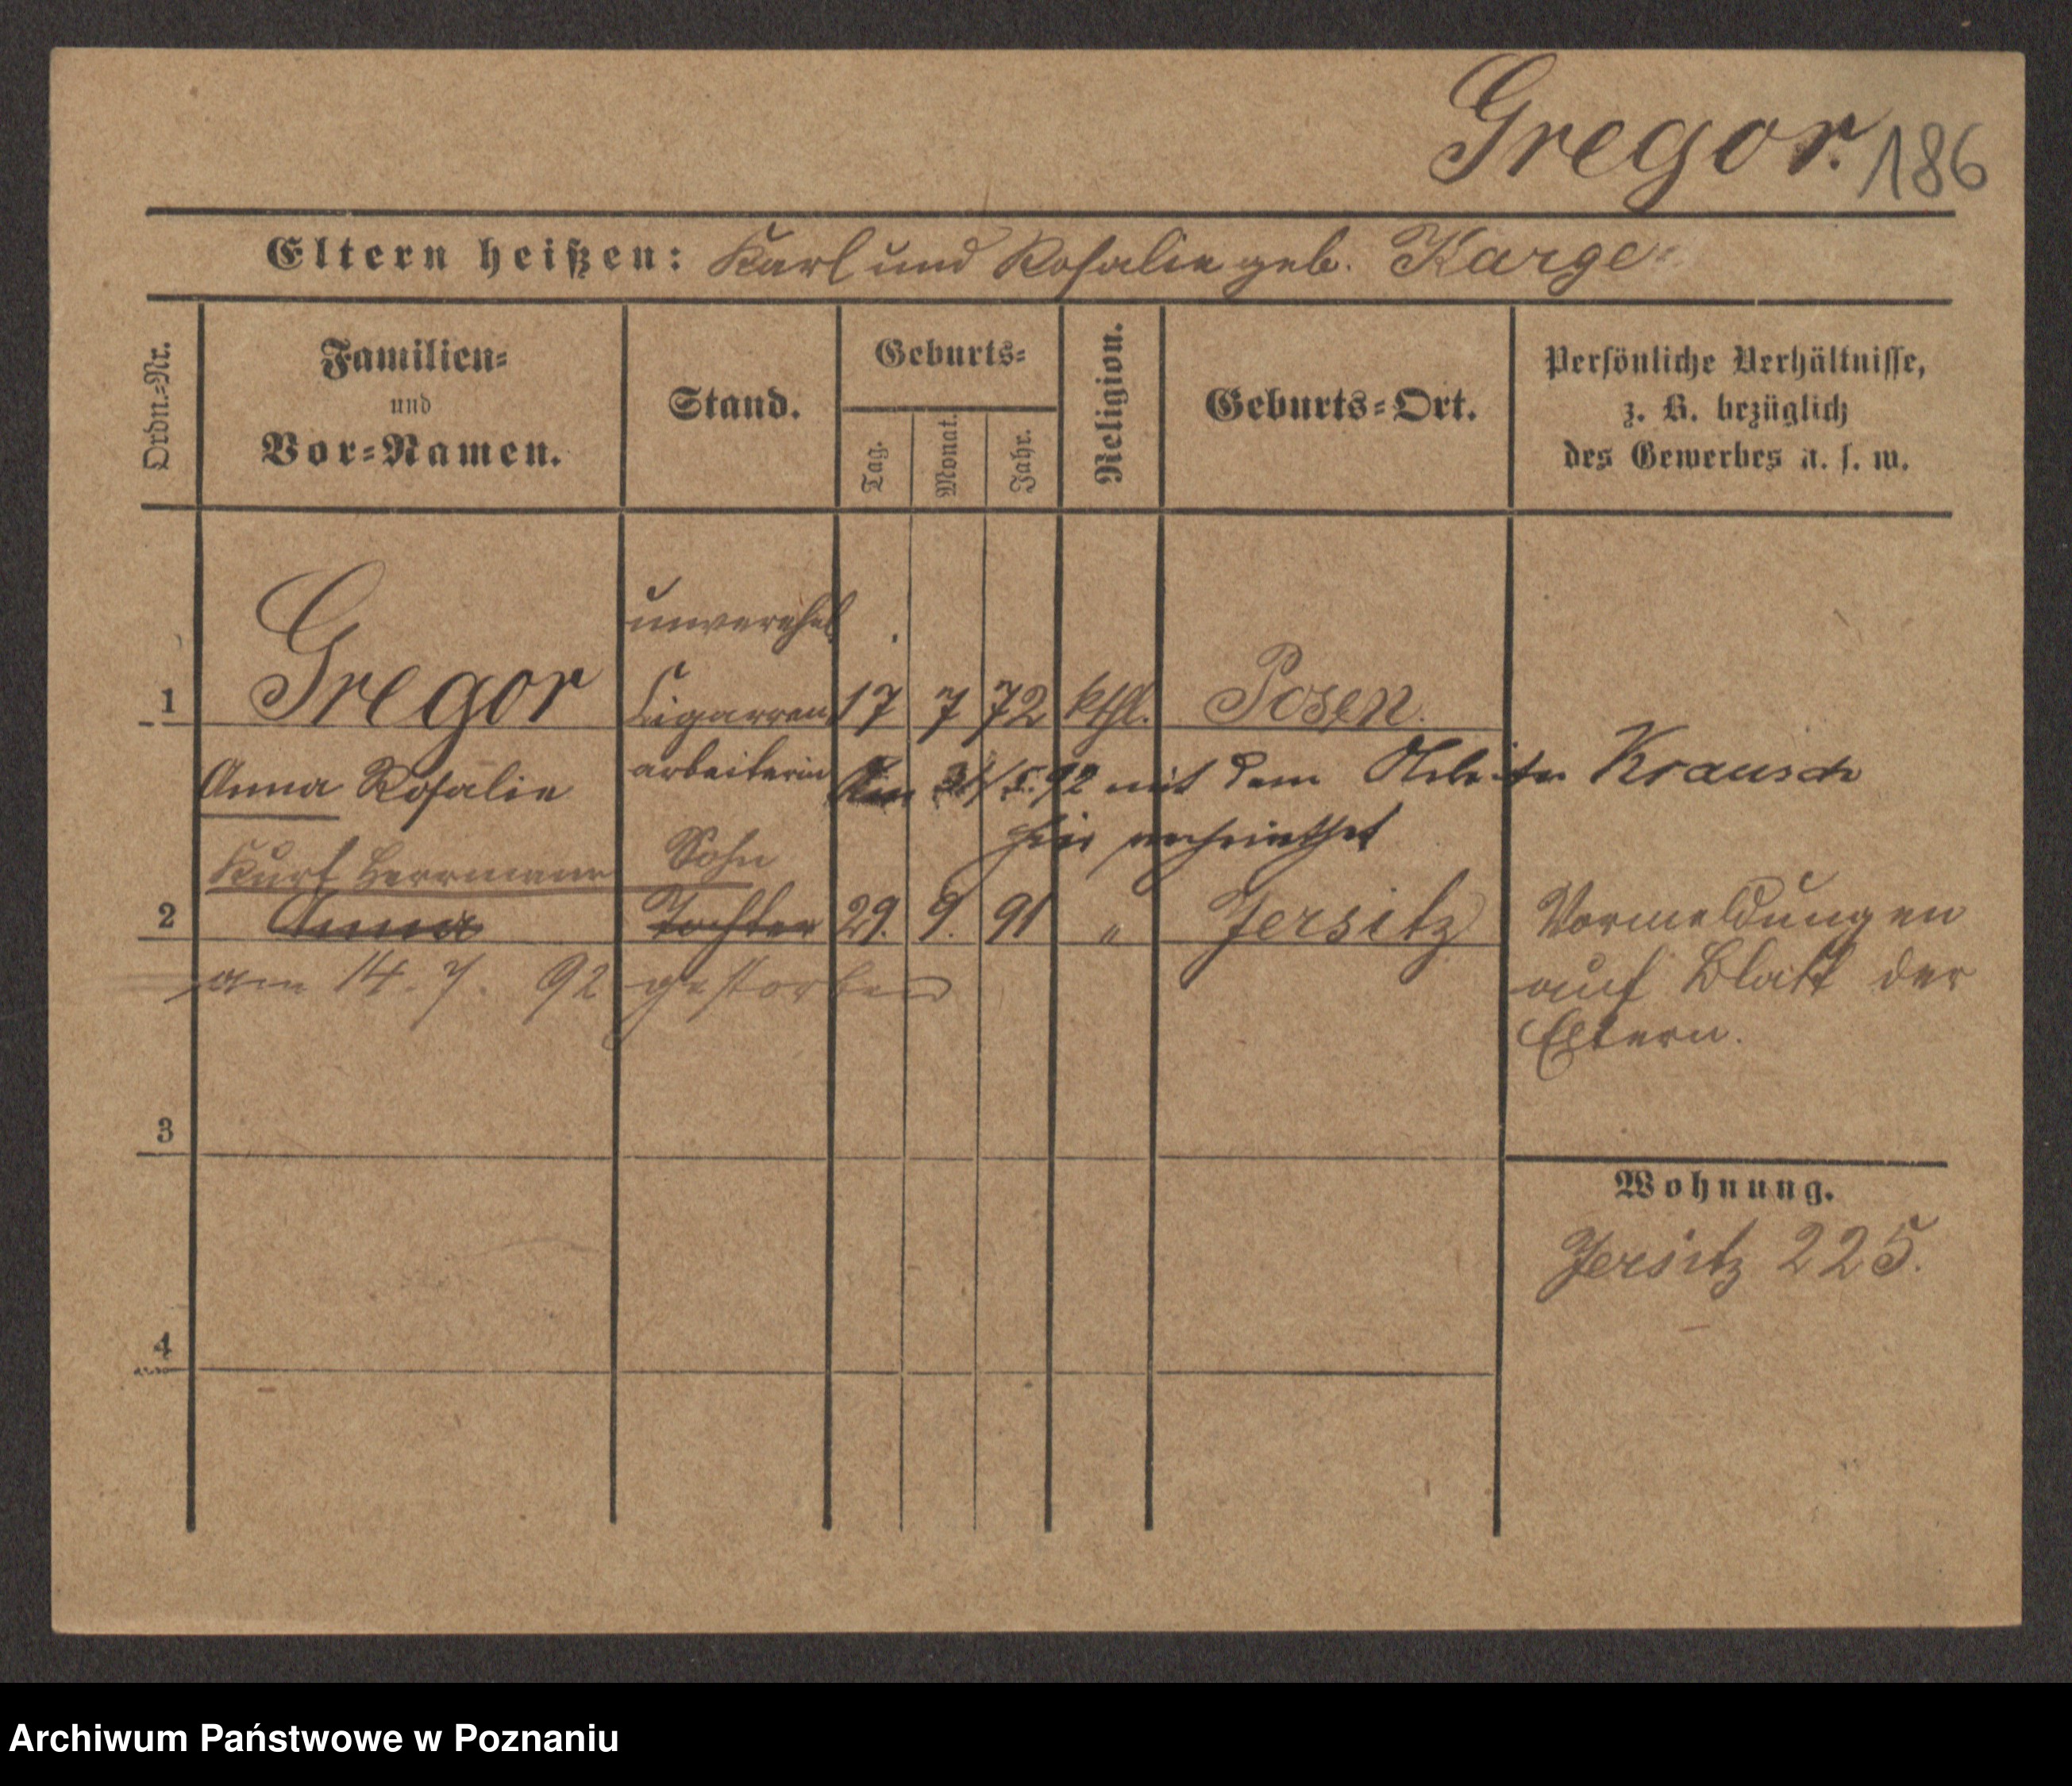 Gregor. 186
Eltern heißen: Karl und Rosalie geb. Karge
Ordn.=Nr.
Familien=
und
Vor=Namen.
Stand.
Geburts=
Tag.
Monat.
Jahr.
Religion.
Geburts=Ort.
Persönliche Verhältnisse,
z. B. bezüglich
des Gewerbes u. s. w.
unverehel.
1 Gregor Cigarren 17 7 72 kthl. Posen.
Anna Rosalie arbeiterin Am 31/5. 92 mit dem Arbeiter Krausch
hier verheirathet
Kurt Herrmann Sohn
2 Anna Tochter 29. 9. 91 " Jersitz Vormeldungen
am 14. 7. 92 gestorben auf Blatt der
Eltern.
3
Wohnung.
Jersitz 225.
4
Archiwum Państwowe w Poznaniu